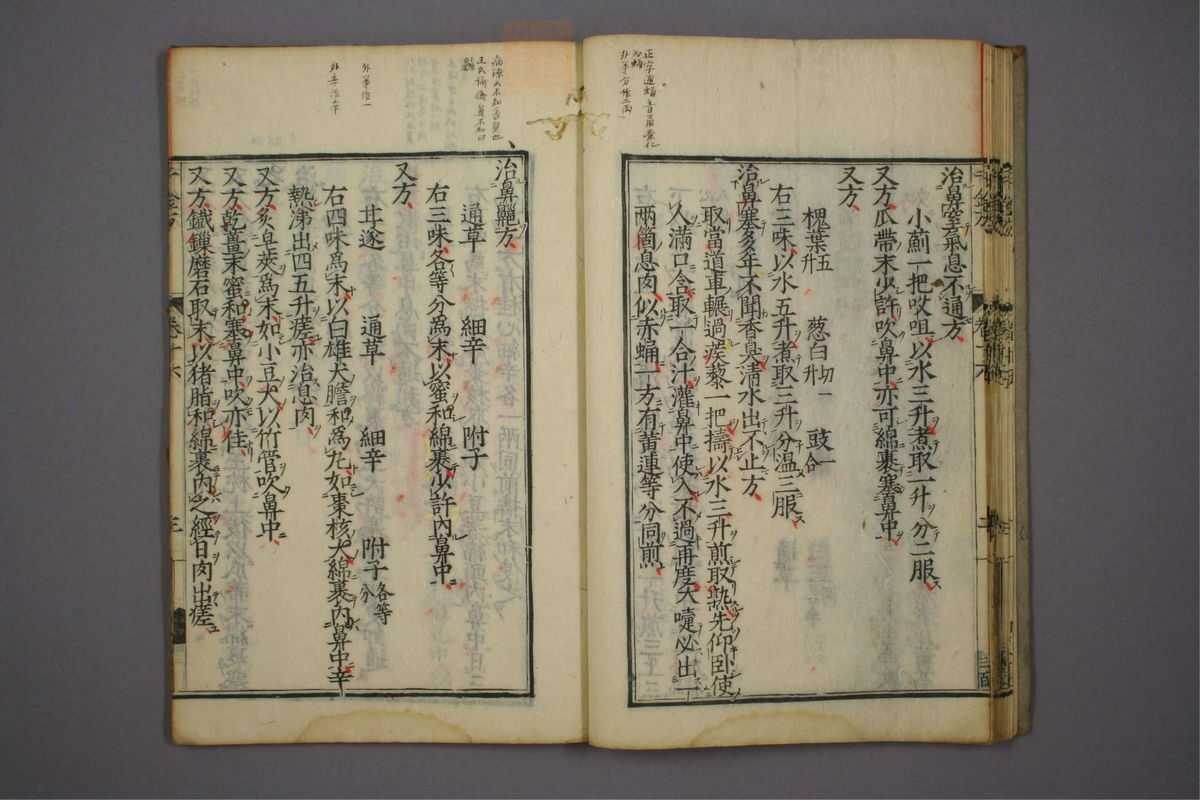 治鼻窒氣息不通方
小薊一把㕮咀以水三升煮取一升分二服
又方瓜帶末少許吹鼻中亦可綿裹塞鼻中
又方
槐葉五升 葱白切一升 豉一合
右三味以水五升煮取三升分温三服
治鼻塞多年不聞香臭清水出不止方
取當道車輾過蒺藜一把擣以水三升煎取熟先仰卧使
人滿口含取一合汁灌鼻中使入不過再度大嚏必出一
兩箇息肉似赤蛹一方有黃連等分同煎
治鼻齆方
通草 細辛 附子
右三味各等分爲末以蜜和綿裹少許內鼻中
又方
甘遂 通草 細辛 附子各等分
右四味爲末以白雄犬膽和爲丸如棗核大綿裹內鼻中辛
熱涕出四五升瘥亦治息肉
又方炙皁莢爲末如小豆大以竹管吹鼻中
又方乾薑末蜜和塞鼻中吹亦佳
又方鐵鏁磨石取末以猪脂和綿裹內之經日肉出瘥
千金方 卷十六 三
正字通蛹音甬蚕化
爲蛹
外臺作一